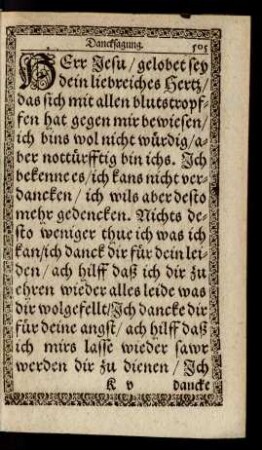 Dancksagung. 505
HErr Jesu / gelobet sey
dein liebreiches Hertz /
das sich mit allen blutstropf-
fen hat gegen mir bewiesen /
ich bins wol nicht würdig / a-
ber nottürfftig bin ichs. Ich
bekenne es / ich kans nicht ver-
dancken / ich wils aber desto
mehr gedencken. Nichts de-
sto weniger thue ich was ich
kan / ich danck dir für dein lei-
den / ach hilff daß ich dir zu
ehren wieder alles leide was
dir wolgefellt / Ich dancke dir
für deine angst / ach hilff daß
ich mirs lasse wieder sawr
werden dir zu dienen / Ich
K v dancke